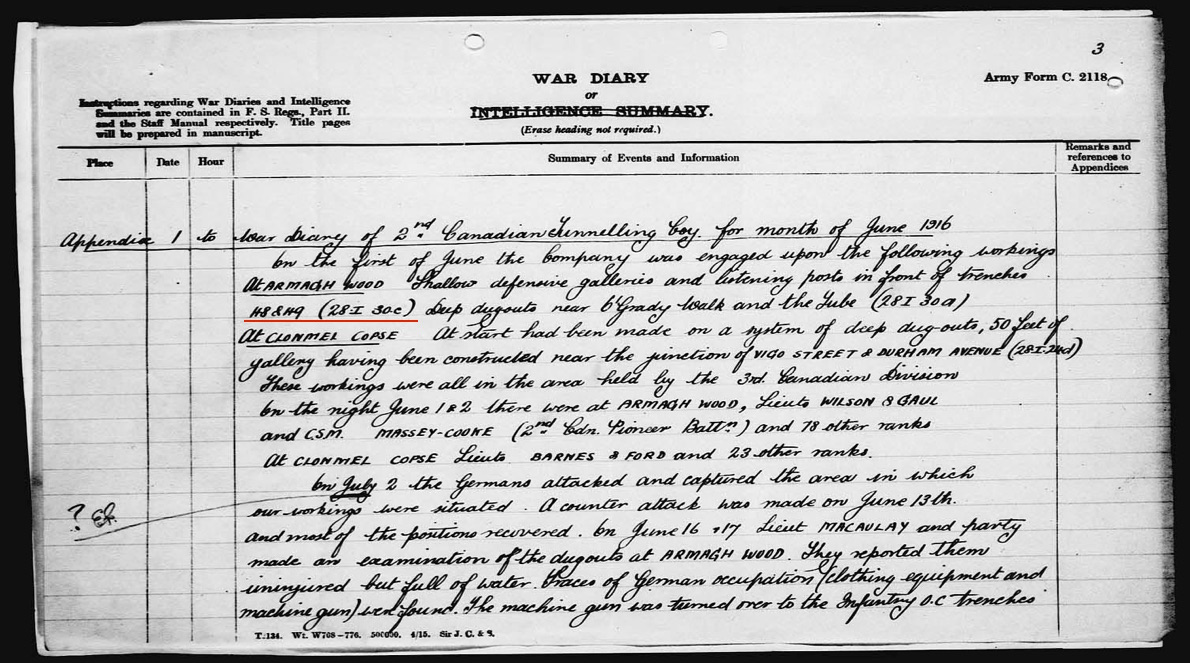 3
WAR DIARY
or
INTELLIGENCE SUMMARY.
(Erase heading not required.)
Army Form C. 2118.
Instructions regarding War Diaries and Intelligence
Summaries are contained in F. S. Regs., Part II.
and the Staff Manual respectively. Title pages
will be prepared in manuscript.
Place
Date
Hour
Summary of Events and Information
Remarks and
references to
Appendices
Appendix 1 to War Diary of 2nd Canadian Tunnelling Coy. for month of June 1916
On the first of June the Company was engaged upon the following workings
At ARMAGH WOOD Shallow defensive galleries and listening posts in front of trenches
48 & 49 (28 I 30c) Deep dugouts near O'Grady Walk and the Tube (28 I 30a)
At CLONMEL COPSE At start had been made on a system of deep dug-outs, 50 feet of
gallery having been constructed near the junction of VIGO STREET & DURHAM AVENUE (28 I 24d)
These workings were all in the area held by the 3rd. Canadian Division
On the night June 1 & 2 there were at ARMAGH WOOD, Lieuts WILSON & GAUL
and C.S.M. MASSEY-COOKE (2nd Cdn. Pioneer Battn) and 78 other ranks
At CLONMEL COPSE Lieuts BARNES & FORD and 23 other ranks.
On July 2 the Germans attacked and captured the area in which
our workings were situated. A counter attack was made on June 13th.
? ER
and most of the positions recovered. On June 16 & 17 Lieut MACAULAY and party
made an examination of the dugouts at ARMAGH WOOD. They reported them
uninjured but full of water. Traces of German occupation (clothing equipment and
machine gun) were found. The machine gun was turned over to the Infantry O.C trenches
T.134. Wt. W708-776. 500000. 4/15. Sir J. C. & S.